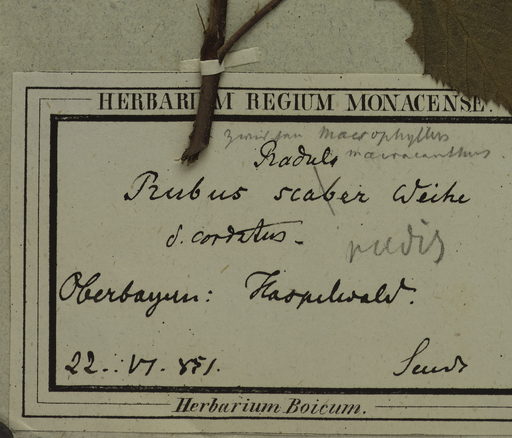 HERBARIUM REGIUM MONACENSE.
zwischen macrophyllus
macracanthus.
Radula
Rubus scaber Weihe
δ. cordatus.
rudis
Oberbayern: Haspelwald.
22. VI. 851.
Herbarium Boicum.